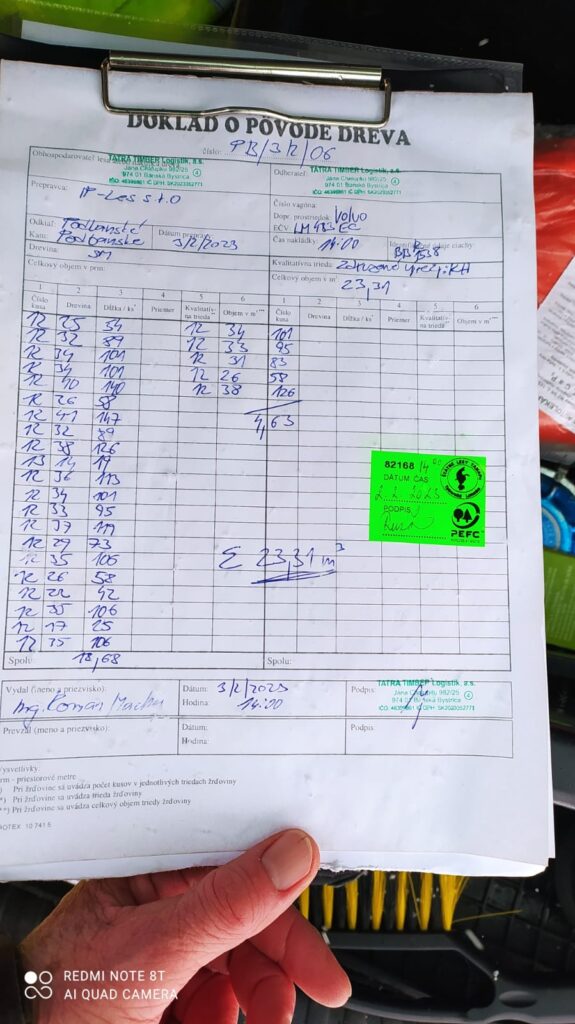 DOKLAD O PÔVODE DREVA
číslo: PB/3/2/06
Obhospodarovateľ lesa
TATRA TIMBER Logistik, a.s.
974 01 Banská Bystrica
Odberateľ:
TATRA TIMBER Logistik, a.s.
974 01 Banská Bystrica
Prepravca:
IP-Les s.r.o
Číslo vagóna:
Dopr. prostriedok Volvo
EČV:
Odkiaľ: Podbanské
Kam: Podbanské
Dátum prepravy:
3/2/2023
Čas nakládky: 14:00
Identifikačné údaje ciachy:
Drevina: SM
Kvalitatívna trieda:
Celkový objem v prm:
Celkový objem v m³
23,31
1 2 3 4 5 6 1 2 3 4 5 6
Číslo kusa Drevina Dĺžka / ks Priemer Kvalitatív- na trieda Objem v m³ Číslo kusa Drevina Dĺžka / ks Priemer Kvalitatív- na trieda Objem v m³
12 25 54 12 34 101
12 32 89 12 33 95
12 34 101 12 31 83
12 34 101 12 26 58
12 40 140 12 38 126
12 26 58
12 41 147 4,63
12 32 89
12 38 126
13 14 19
12 36 113
12 34 101
12 33 95
12 37 119
12 29 73
12 35 106 Σ 23,31 m³
12 26 58
12 22 42
12 35 106
12 17 25
12 35 106
Spolu: 18,68 Spolu:
82168 /14:00
DÁTUM ČAS
2. 2. 2023
PODPIS
PEFC
Vydal (meno a priezvisko):
Ing. Roman
Dátum: 3/2/2023
Hodina: 14:00
Podpis:
TATRA TIMBER Logistik, a.s.
974 01 Banská Bystrica
Prevzal (meno a priezvisko):
Dátum:
Hodina:
Podpis:
Vysvetlivky:
rm - priestorové metre
*) Pri žrďovine sa uvádza počet kusov v jednotlivých triedach žrďoviny
**) Pri žrďovine sa uvádza trieda žrďoviny
***) Pri žrďovine sa uvádza celkový objem triedy žrďoviny
ROTEX 10 741 5
REDMI NOTE 8T
AI QUAD CAMERA